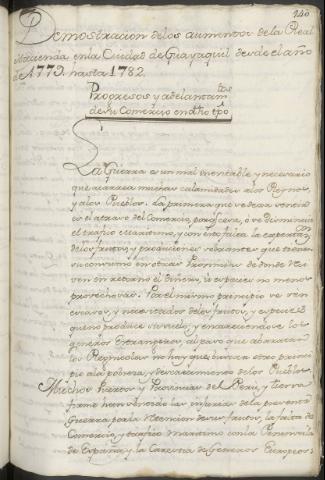 140
Demostracion de los aumentos de la Real
Hacienda en la Ciudad de Guayaquil desde el año
de 1779. hasta 1782.
Progresos y adelantam.tos
de su Comercio en dho tpo
La Guerra es un mal inevitable y necesario
que acarrea muchas calamidades a los Reynos,
y a los Pueblos. La primera que se deja
es el atraso del Comercio, pues cesa, ó se disminuye
el trafico maritimo, y con esto falta la
de los frutos, y producciones sobrantes que tienen
su consumo en otras Provincias de donde
ven en retorno el dinero, ú especies no menos
provechosas. Por el mismo principio se ven
y necesitados de los frutos, y especies
que no produce su suelo, y encareciendose los
generos Estrangeros, al paso que abaratan
los Reynicolas no hay que buscar otro princi-
pio a la pobreza, y de los Pueblos.
Muchos Puertos y Provincias del Peru, y tierra
firme han
Guerra por la de sus frutos, la falta de
Comercio, y trafico maritimo con la Peninsula
de España, y la Carestia de Generos Europeos: